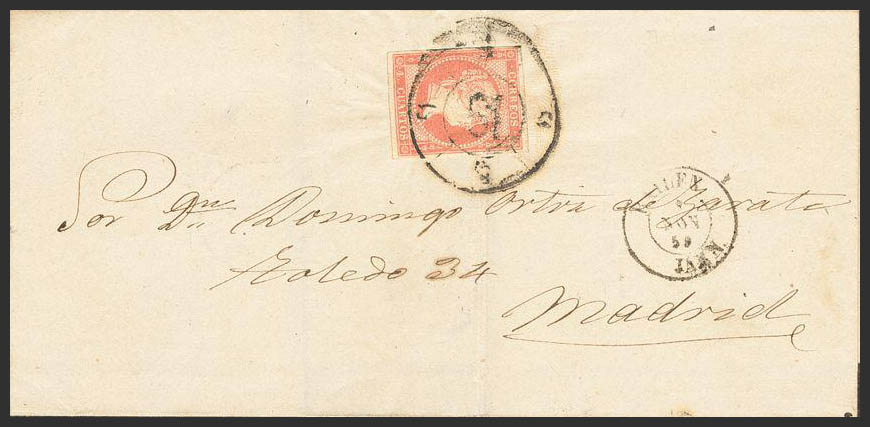 CORREOS
4 CUARTOS
Sor Dn Domingo Ortiz de Zarate
NOV
59
JAEN.
Toledo 34
Madrid